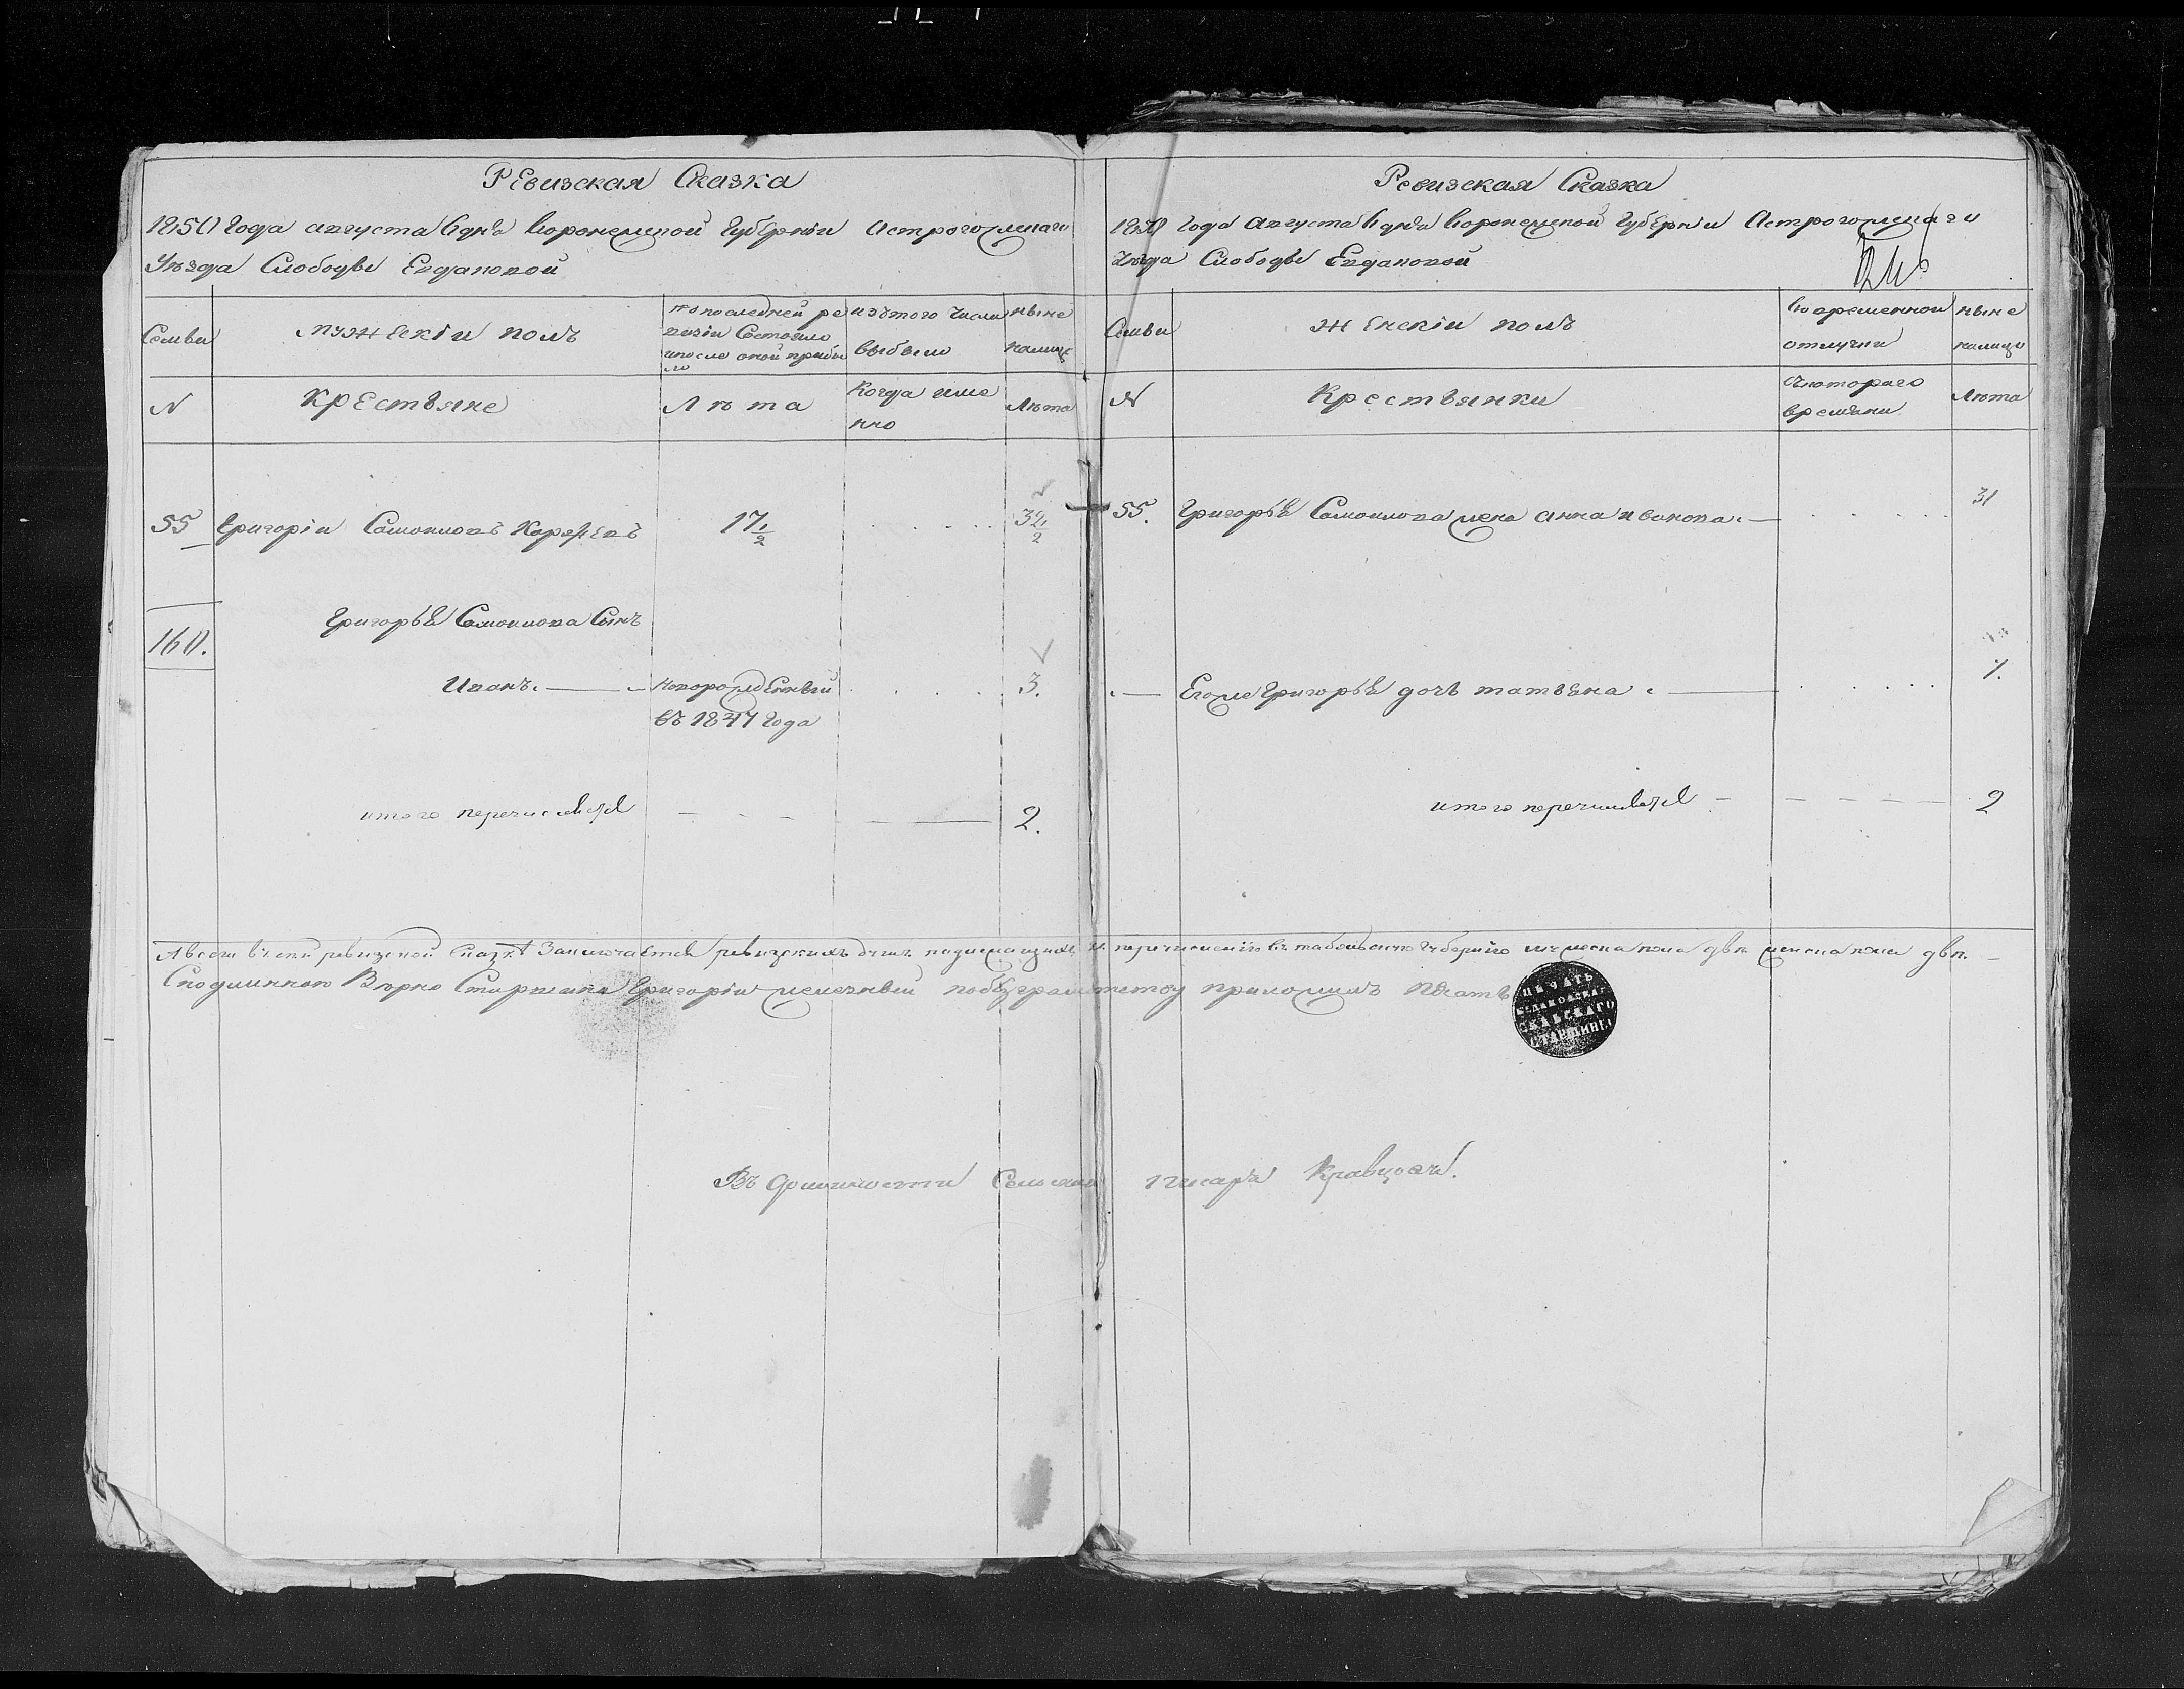 Ревизская Сказка
1850 Года августа 6 дня Воронежской Губернии Острогожскаго
Уѣзда Слободы Евдаковой
Семьи
мужескiи полъ
По последней ре
визiи Состояло
и после оной прибы
ло
изъ того числа
выбыло
ныне
на лице
N
Крестьяне
Лѣта
Когда име
нно
Лѣта
55 Григорiи Самоиловъ 17 1/2 . . . . 32 1/2
160.
Григорья Самоилова Сынъ
Иванъ. — новорожденный . . . . 3.
въ 1847 года
итого перечисляется — — — 2.
Ревизская Сказка
1850 Года Августа 6 дня Воронежской Губернiи Острогожскаго
Уѣзда Слободы Евдаковой
Семьи
Женскiи полъ
Во временной
отлучки
ныне
на лице
N
Крестьянки
С котораго
времяни
Лѣта
55. Григорья Самоилова жена анна иванова. — . . . . 31
— Его же Григорья дочь татьяна . — . . . . 1.
итого перечисляется — — — — 2
А всего в сей ревизской Сказкѣ Заключается ревизскихъ душъ подлежащихъ к перечисленiю въ губернiю мужеска пола двѣ женска пола двѣ. —
С подлинною Вѣрно Старшина Григорiи по безграмотству приложилъ печать
ПЕЧАТЬ
ЕВДАКОВСКАГО
СЕЛЬСКАГО
СТАРШИНЫ
Въ Должности Сельскаго писаря Кравцовъ.